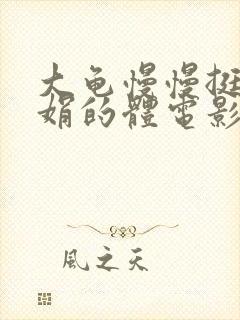 大龟慢慢挺
娟的體電影
風之天